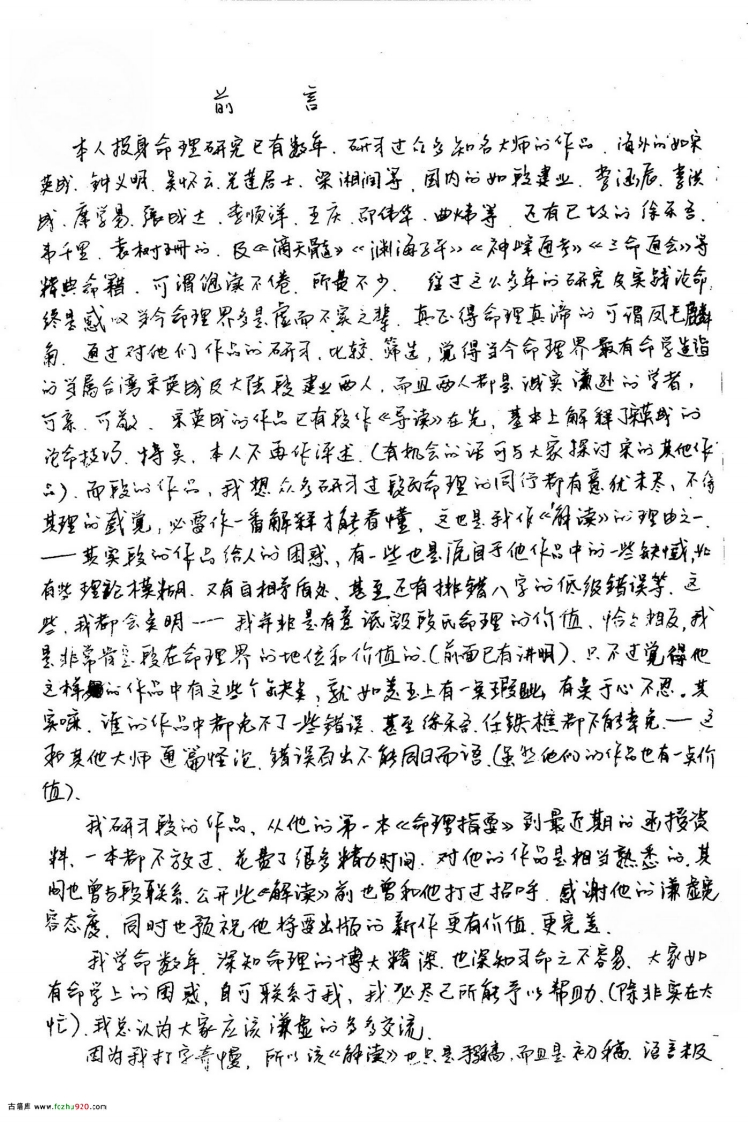 前言
本人投身命理研究已有数年，研习过众多知名大师的作品，海外的如宋
英成、钟义明、吴怀云、光莲居士、梁湘润等，国内的如段建业、李涵辰、李洪
成、席学易、张成达、李顺祥、王庆、邵伟华、曲炜等，还有已故的徐乐吾、
韦千里、袁树珊的，及《滴天髓》《渊海子平》《神峰通考》《三命通会》等
精典命籍，可谓饱读不倦，所费不少。经过这么多年的研究及实践论命，
终是感叹当今命理界多是虚而不实之辈，真正得命理真谛的可谓凤毛麟
角。通过对他们作品的研习、比较、筛选，觉得当今命理界最有命学造诣
的当属台湾宋英成及大陆段建业两人，而且两人都是诚实谦逊的学者，
可亲、可敬。宋英成的作品已有段作《导读》在先，基本上解释了宋英成的
论命技巧、特点，本人不再作评述（有机会的话可与大家探讨宋的其他作
品）。而段的作品，我想众多研习过段氏命理的同行都有意犹未尽，不得
其理的感觉，必需作一番解释才能看懂，这也是我作《解读》的理由之一。
——其实段的作品给人的困惑，有一些也是源自于他作品中的一些缺憾，如
有些理论模糊，又有自相矛盾处，甚至还有排错八字的低级错误等，这
些，我都会点明——我并非是有意诋毁段氏命理的价值，恰恰相反，我
是非常肯定段在命理界的地位和价值的（前面已有讲明），只不过觉得他
这样的作品中有这些个缺点，就如美玉上有一点瑕疵，有点于心不忍。其
实嘛，谁的作品中都免不了一些错误，甚至徐乐吾、任铁樵都不能幸免，——这
和其他大师通篇怪论、错误百出不能同日而语（虽然他们的作品也有一点价
值）。
我研习段的作品，从他的第一本《命理指要》到最近期的函授资
料，一本都不放过，花费了很多精力时间，对他的作品是相当熟悉的，其
间也曾与段联系，公开此《解读》前也曾和他打过招呼，感谢他的谦虚宽
容态度，同时也预祝他将要出版的新作更有价值，更完美。
我学命数年，深知命理的博大精深，也深知习命之不容易，大家如
有命学上的困惑，自可联系于我，我必尽己所能予以帮助（除非实在太
忙）。我总认为大家应该谦虚的多多交流。
因为我打字奇慢，所以该《解读》也只是手稿，而且是初稿，语言极
古籍库 www.fczhu920.com